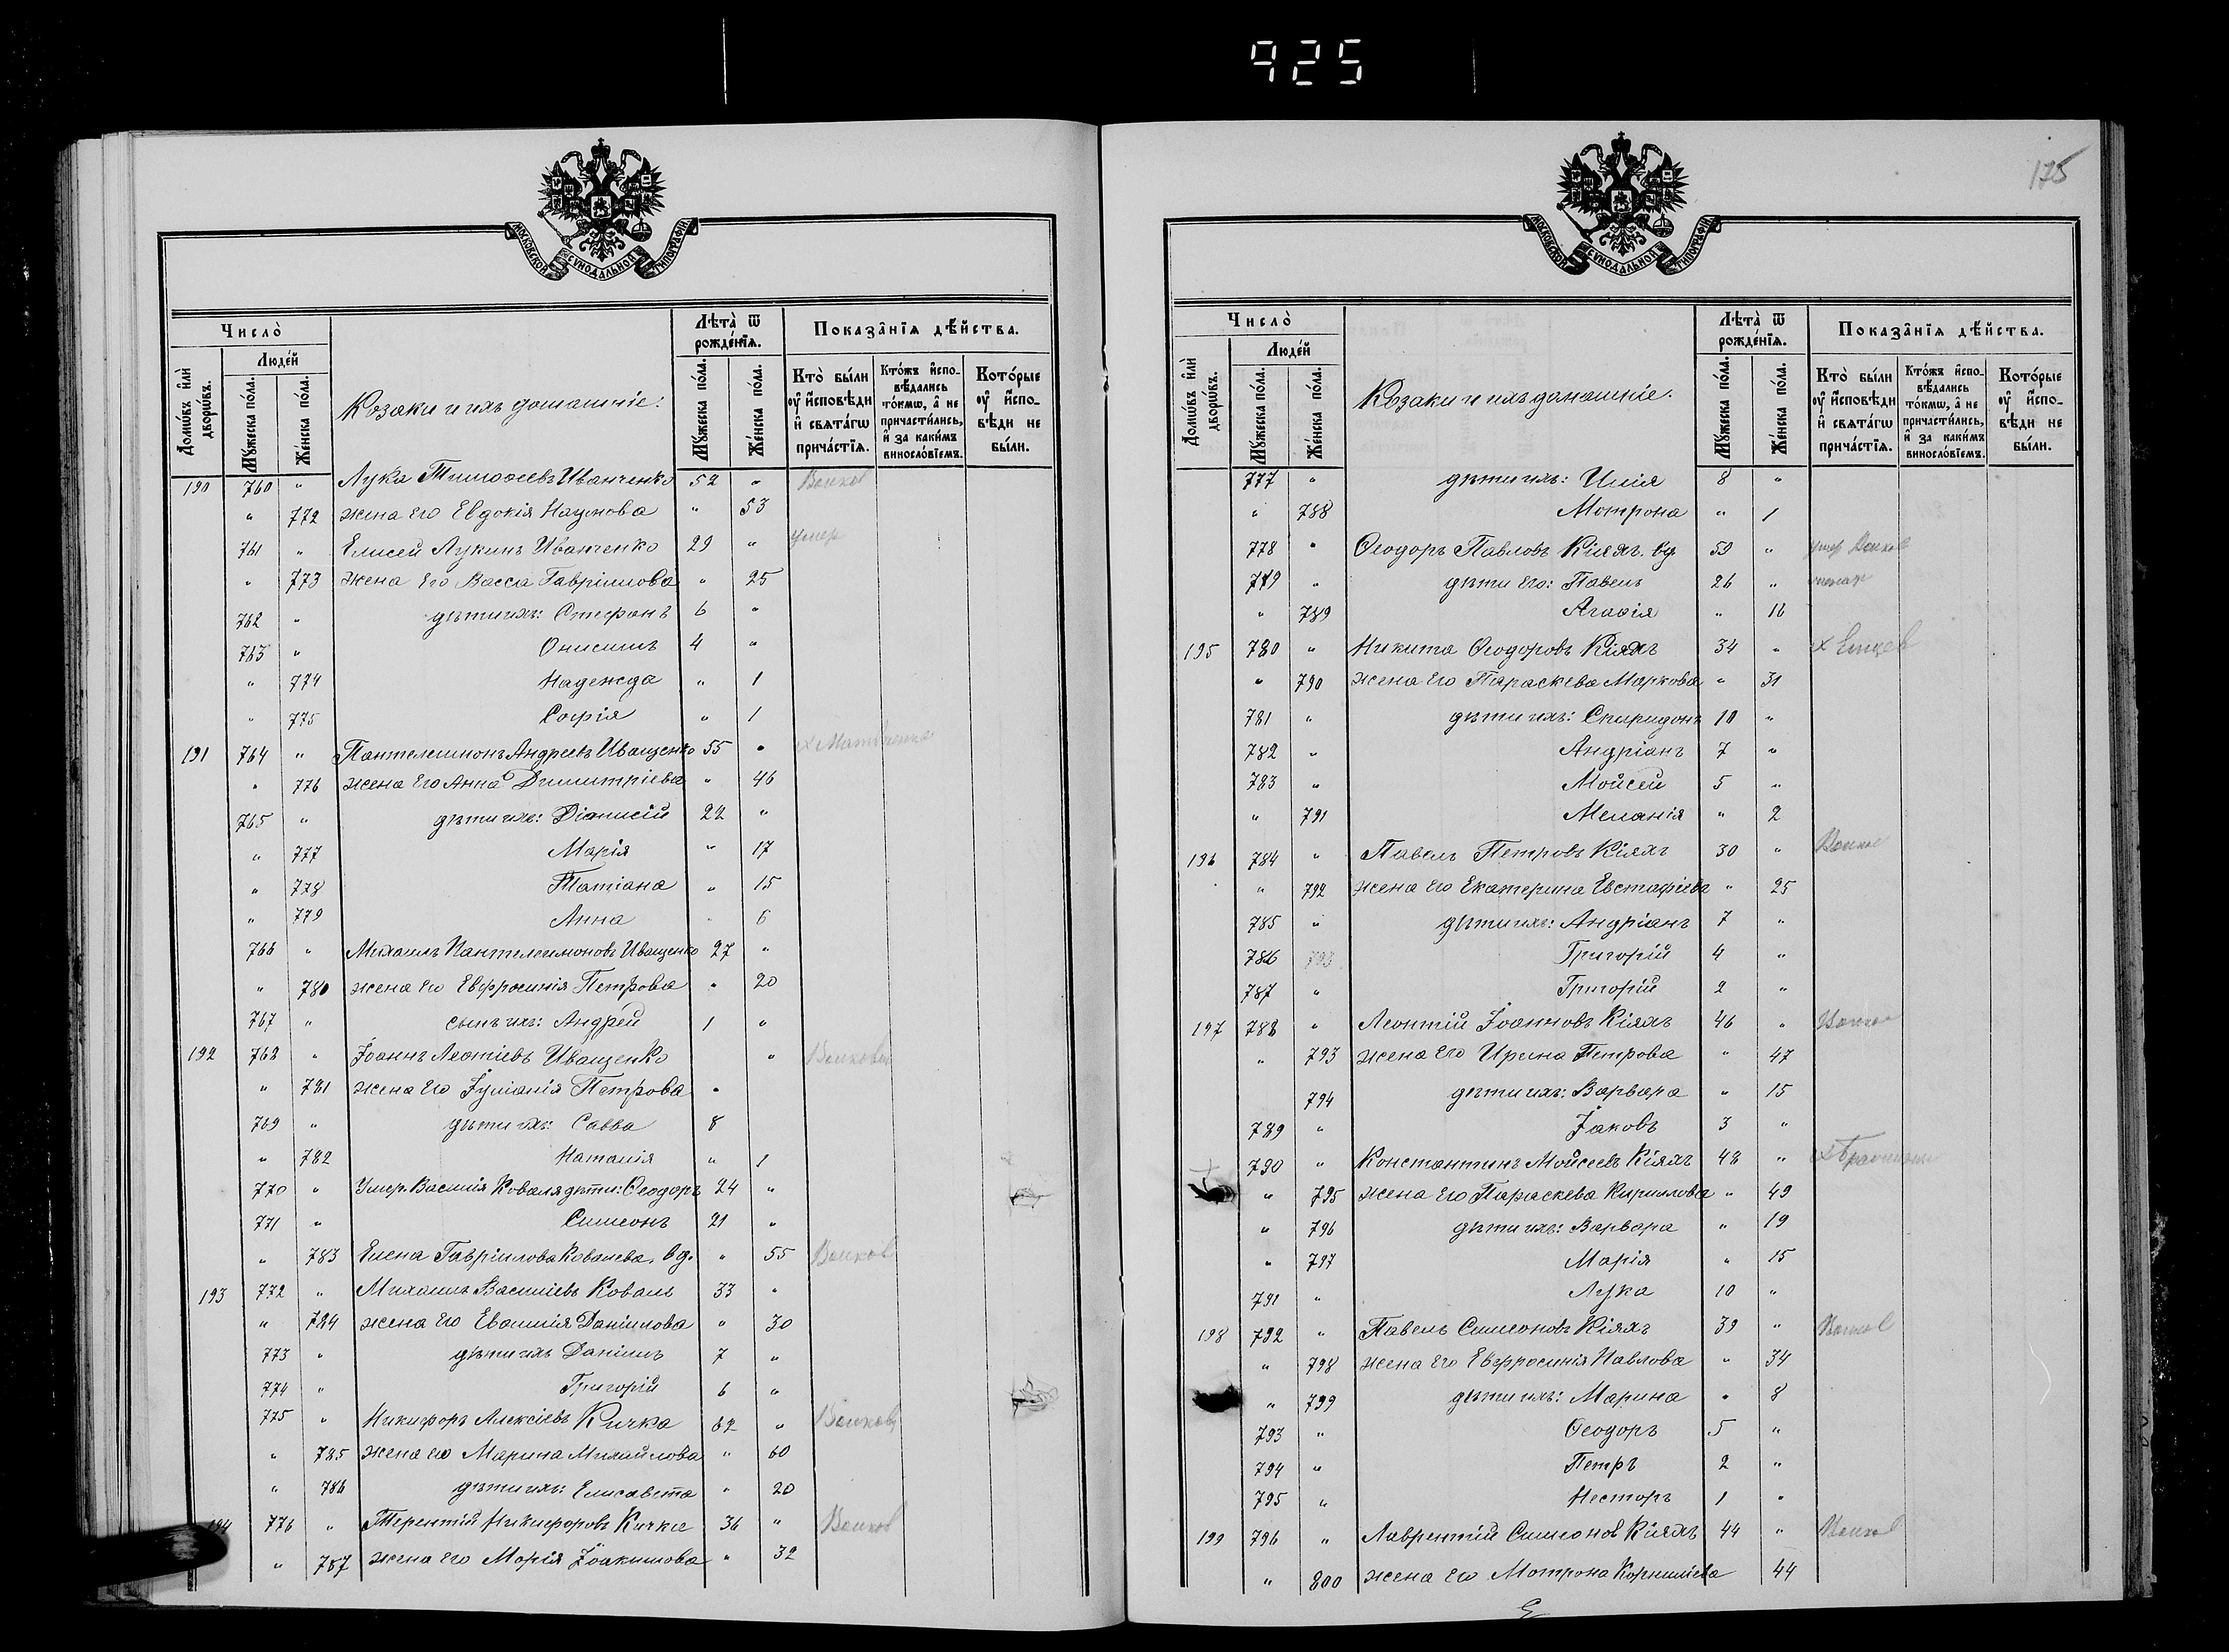 925
МОСКОВСКОЙ СѴНОДАЛЬНОЙ ТИПОГРАФІИ
Число̀
Людéй
Домѡ́въ и҆лѝ дворѡ́въ.
Мꙋ́жеска по́ла.
Же́нска по́ла.
Козаки и ихъ домашніе:
Лѣ́та ѿ рожде́нїѧ.
Мꙋ́жеска по́ла.
Же́нска по́ла.
Показа̑нїѧ дѣ́йства.
Кто̀ бы́ли ᲂу҆ и҆сповѣ́ди и҆ свѧта́гѡ прича́стїѧ.
Кто́жъ и҆спо-вѣ́дались то́кмѡ, а҆ не причасти́лись, и҆ за каки́мъ винослоʹвїемъ.
Кото́рые ᲂу҆ и҆спо-вѣ́ди не бы́ли.
190 760 " Лука Тимоѳеевъ Иванченко 52 "
" 772 жена его Евдокія Наумова " 53
761 " Елисей Лукинъ Иванченко 29 " умер
" 773 жена его Васса Гавріилова " 25
762 " дѣти ихъ: Стефанъ 6 "
763 " Онисимъ 4 "
" 774 Надежда " 1
" 775 Софія " 1
191 764 " Пантелеимонъ Андреевъ Иващенко 55 "
" 776 жена его Анна Димитріева " 46
765 " дѣти ихъ: Діонисій 22 "
" 777 Марія " 17
" 778 Татіана " 15
" 779 Анна " 6
766 " Михаилъ Пантелеимоновъ Иващенко 27 "
" 780 жена его Евфросинія Петрова " 20
767 " сынъ ихъ: Андрей 1 "
192 768 " Іоаннъ Леотіевъ Иващенко "
" 781 жена его Іуліанія Петрова "
769 " дѣти ихъ: Савва 8
" 782 Наталія " 1
770 " Умер. Василія Коваля дѣти: Ѳеодоръ 24 "
771 " Симеонъ 21 "
" 783 Елена Гавріилова Ковалева, вд. " 55
193 772 " Михаилъ Василіевъ Коваль 33 "
" 784 жена его Евѳимія Даніилова " 30
773 " дѣти ихъ Даніилъ 7 "
774 " Григорій 6 "
775 " Никифоръ Алексіевъ Кичка 62 "
" 785 жена его Марина Михайлова " 60
" 786 дѣти ихъ: Елисавета " 20
194 776 " Терентій Никифоровъ Кичка 36 "
" 787 жена его Марія Іоакимова " 32
175
МОСКОВСКОЙ СѴНОДАЛЬНОЙ ТИПОГРАФІИ
Число̀
Людéй
Домѡ́въ и҆лѝ дворѡ́въ.
Мꙋ́жеска по́ла.
Же́нска по́ла.
Козаки и ихъ домашніе.
Лѣ́та ѿ рожде́нїѧ.
Мꙋ́жеска по́ла.
Же́нска по́ла.
Показа̑нїѧ дѣ́йства.
Кто̀ бы́ли ᲂу҆ и҆сповѣ́ди и҆ свѧта́гѡ прича́стїѧ.
Кто́жъ и҆спо-вѣ́дались то́кмѡ, а҆ не причасти́лись, и҆ за каки́мъ винослоʹвїемъ.
Кото́рые ᲂу҆ и҆спо-вѣ́ди не бы́ли.
777 " дѣти ихъ: Илія 8 "
" 788 Мотрона " 1
778 " Ѳеодоръ Павловъ Кіяхъ. вд. 59 " умер
779 " дѣти его: Павелъ 26 "
" 789 Агаѳія " 16
195 780 " Никита Ѳеодоровъ Кіяхъ 34 "
" 790 жена его Параскева Маркова " 31
781 " дѣти ихъ: Спиридонъ 10 "
782 " Андріанъ 7 "
783 " Мойсей 5 "
" 791 Меланія " 2
196 784 " Павелъ Петровъ Кіяхъ 30 "
" 792 жена его Екатерина Евстафіева " 25
785 " дѣти ихъ: Андріанъ 7 "
786 793 Григорій 4 "
787 " Григорій 2 "
197 788 " Леонтій Іоанновъ Кіяхъ 46 "
" 793 жена его Ирина Петрова " 47
794 дѣти ихъ: Варвара " 15
789 " Іаковъ 3 "
790 " Константинъ Мойсеевъ Кіяхъ 48 "
" 795 жена его Параскева Кириллова " 49
" 796 дѣти ихъ: Варвара " 19
" 797 Марія " 15
791 " Лука 10 "
198 792 " Павелъ Симеоновъ Кіяхъ 39 "
" 798 жена его Евфросинія Павлова " 34
" 799 дѣти ихъ: Марина " 8
793 " Ѳеодоръ 5 "
794 " Петръ 2 "
795 " Несторъ 1 "
199 796 " Лаврентій Симеонов Кіяхъ 44 "
" 800 жена его Мотрона Корниліева 44